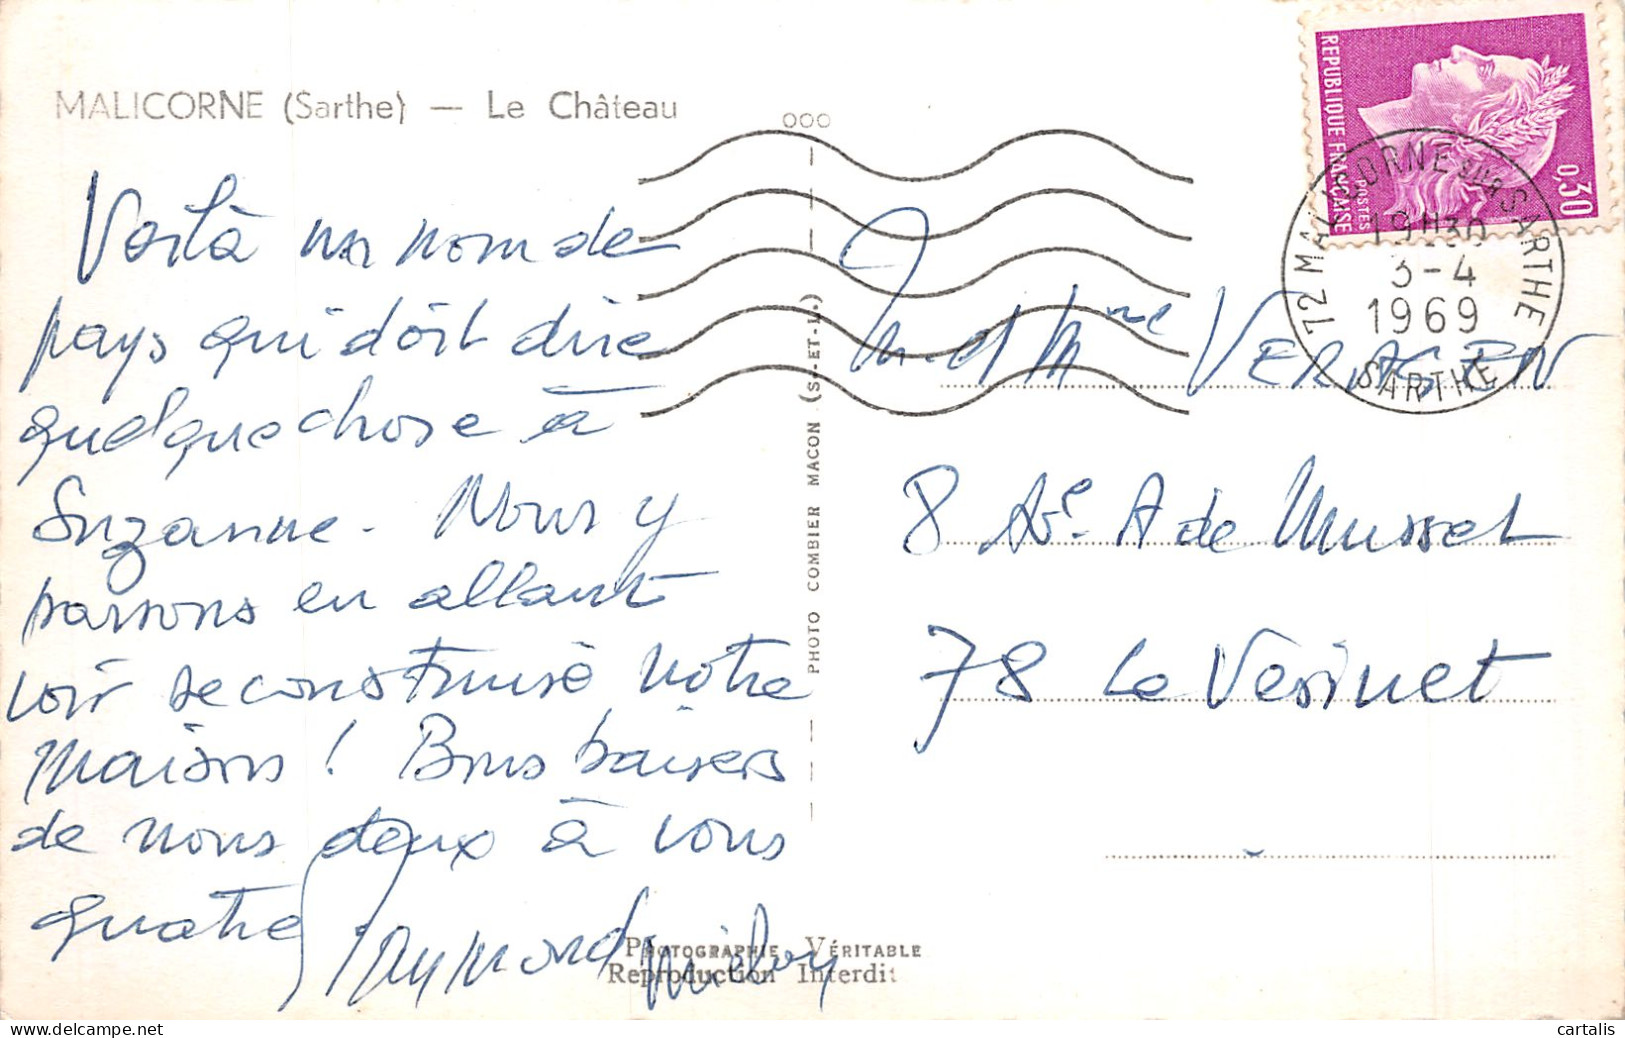 MALICORNE (Sarthe) — Le Château
Voilà un nom de
pays qui doit dire
quelque chose à
Suzanne. Nous y
passons en allant
voir se construire notre
maison ! Bons baisers
de nous deux à vous
quatre
Raymond
000
PHOTO COMBIER MACON (S.-ET-L.)
PHOTOGRAPHIE VÉRITABLE
Reproduction Interdit
REPUBLIQUE FRANÇAISE
POSTES
0,30
72 MALICORNE sur SARTHE
19H30
3-4
1969
SARTHE
M. et Mme
8 Av. A de Musset
78 Le Vésinet
cartalis